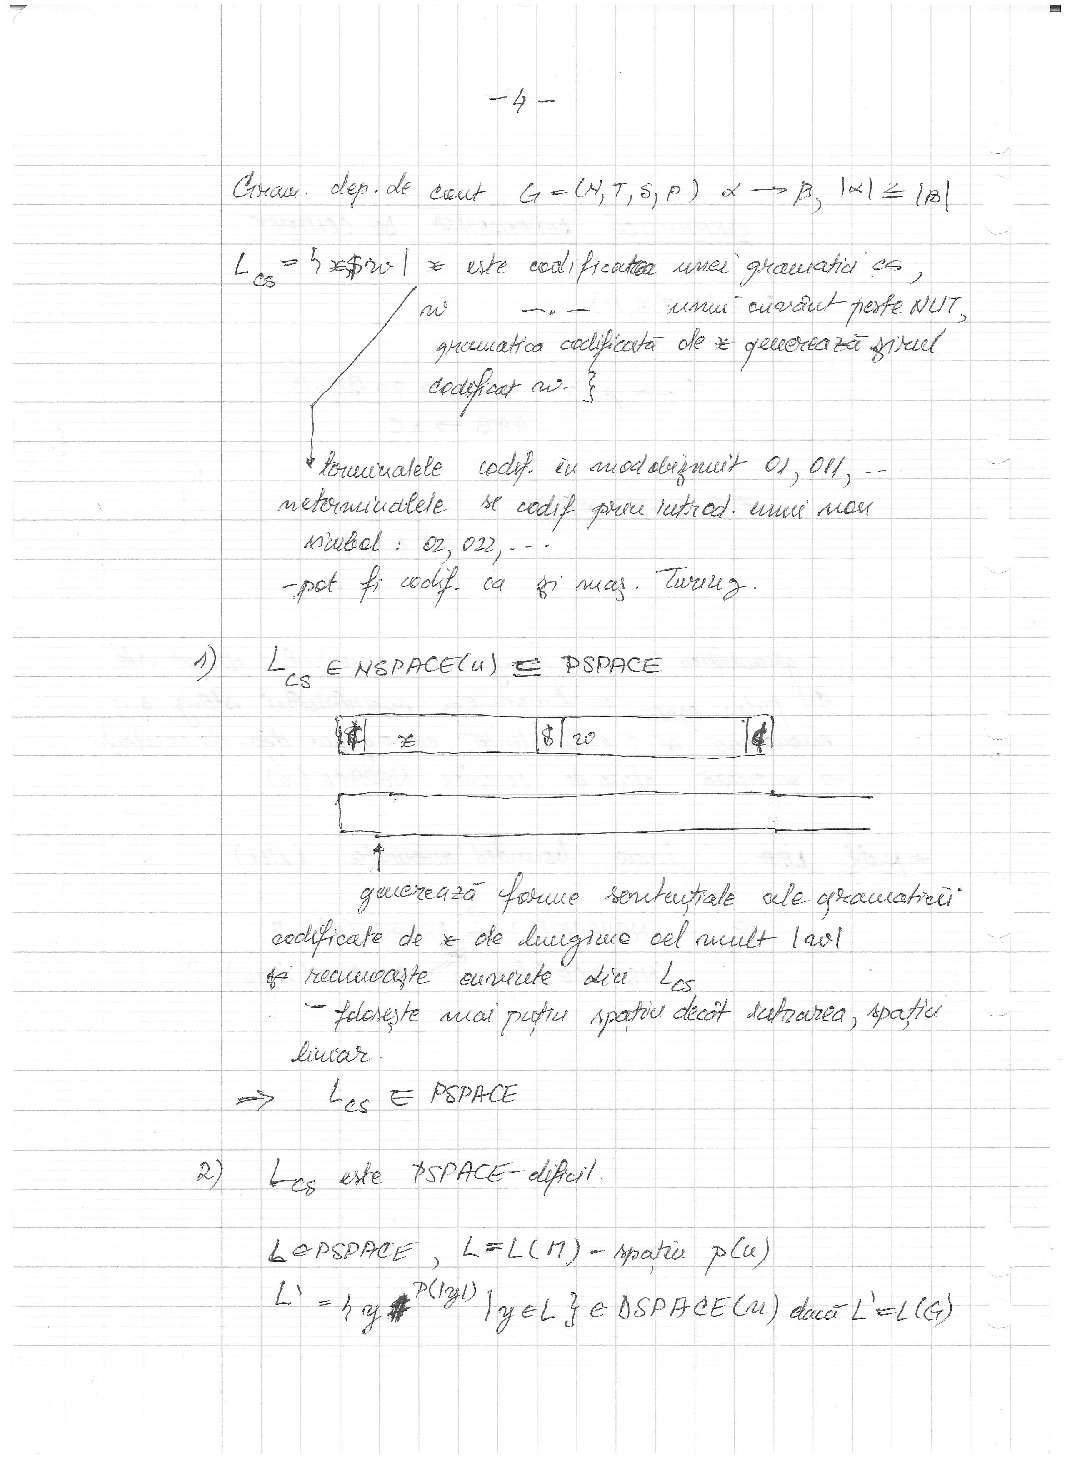 - 4 -
Gram. dep. de cont G = (N, T, S, P) α → β, |α| ≤ |β|
L_CS = { x$w | x este codificarea unei gramatici cs,
w —.— unui cuvânt peste NUT,
gramatica codificată de x generează șirul
codificat w. }
terminalele codif. în mod obișnuit 01, 011, ..
neterminalele se codif prin introd. unui nou
simbol : 02, 022, ...
- pot fi codif. ca și maș. Turing.
1) L_CS ∈ NSPACE(n) ⊆ PSPACE
¢ x $ w ¢
generează forme sentențiale ale gramaticii
codificate de x de lungime cel mult |w|
recunoaște cuvinte din L_CS
- folosește mai puțin spațiu decât intrarea, spațiu
liniar.
⇒ L_CS ∈ PSPACE
2) L_CS este PSPACE-dificil.
L ∈ PSPACE, L = L(M) - spațiu p(n)
L' = { y #^p(|y|) | y ∈ L } ∈ DSPACE(n) dacă L' = L(G)